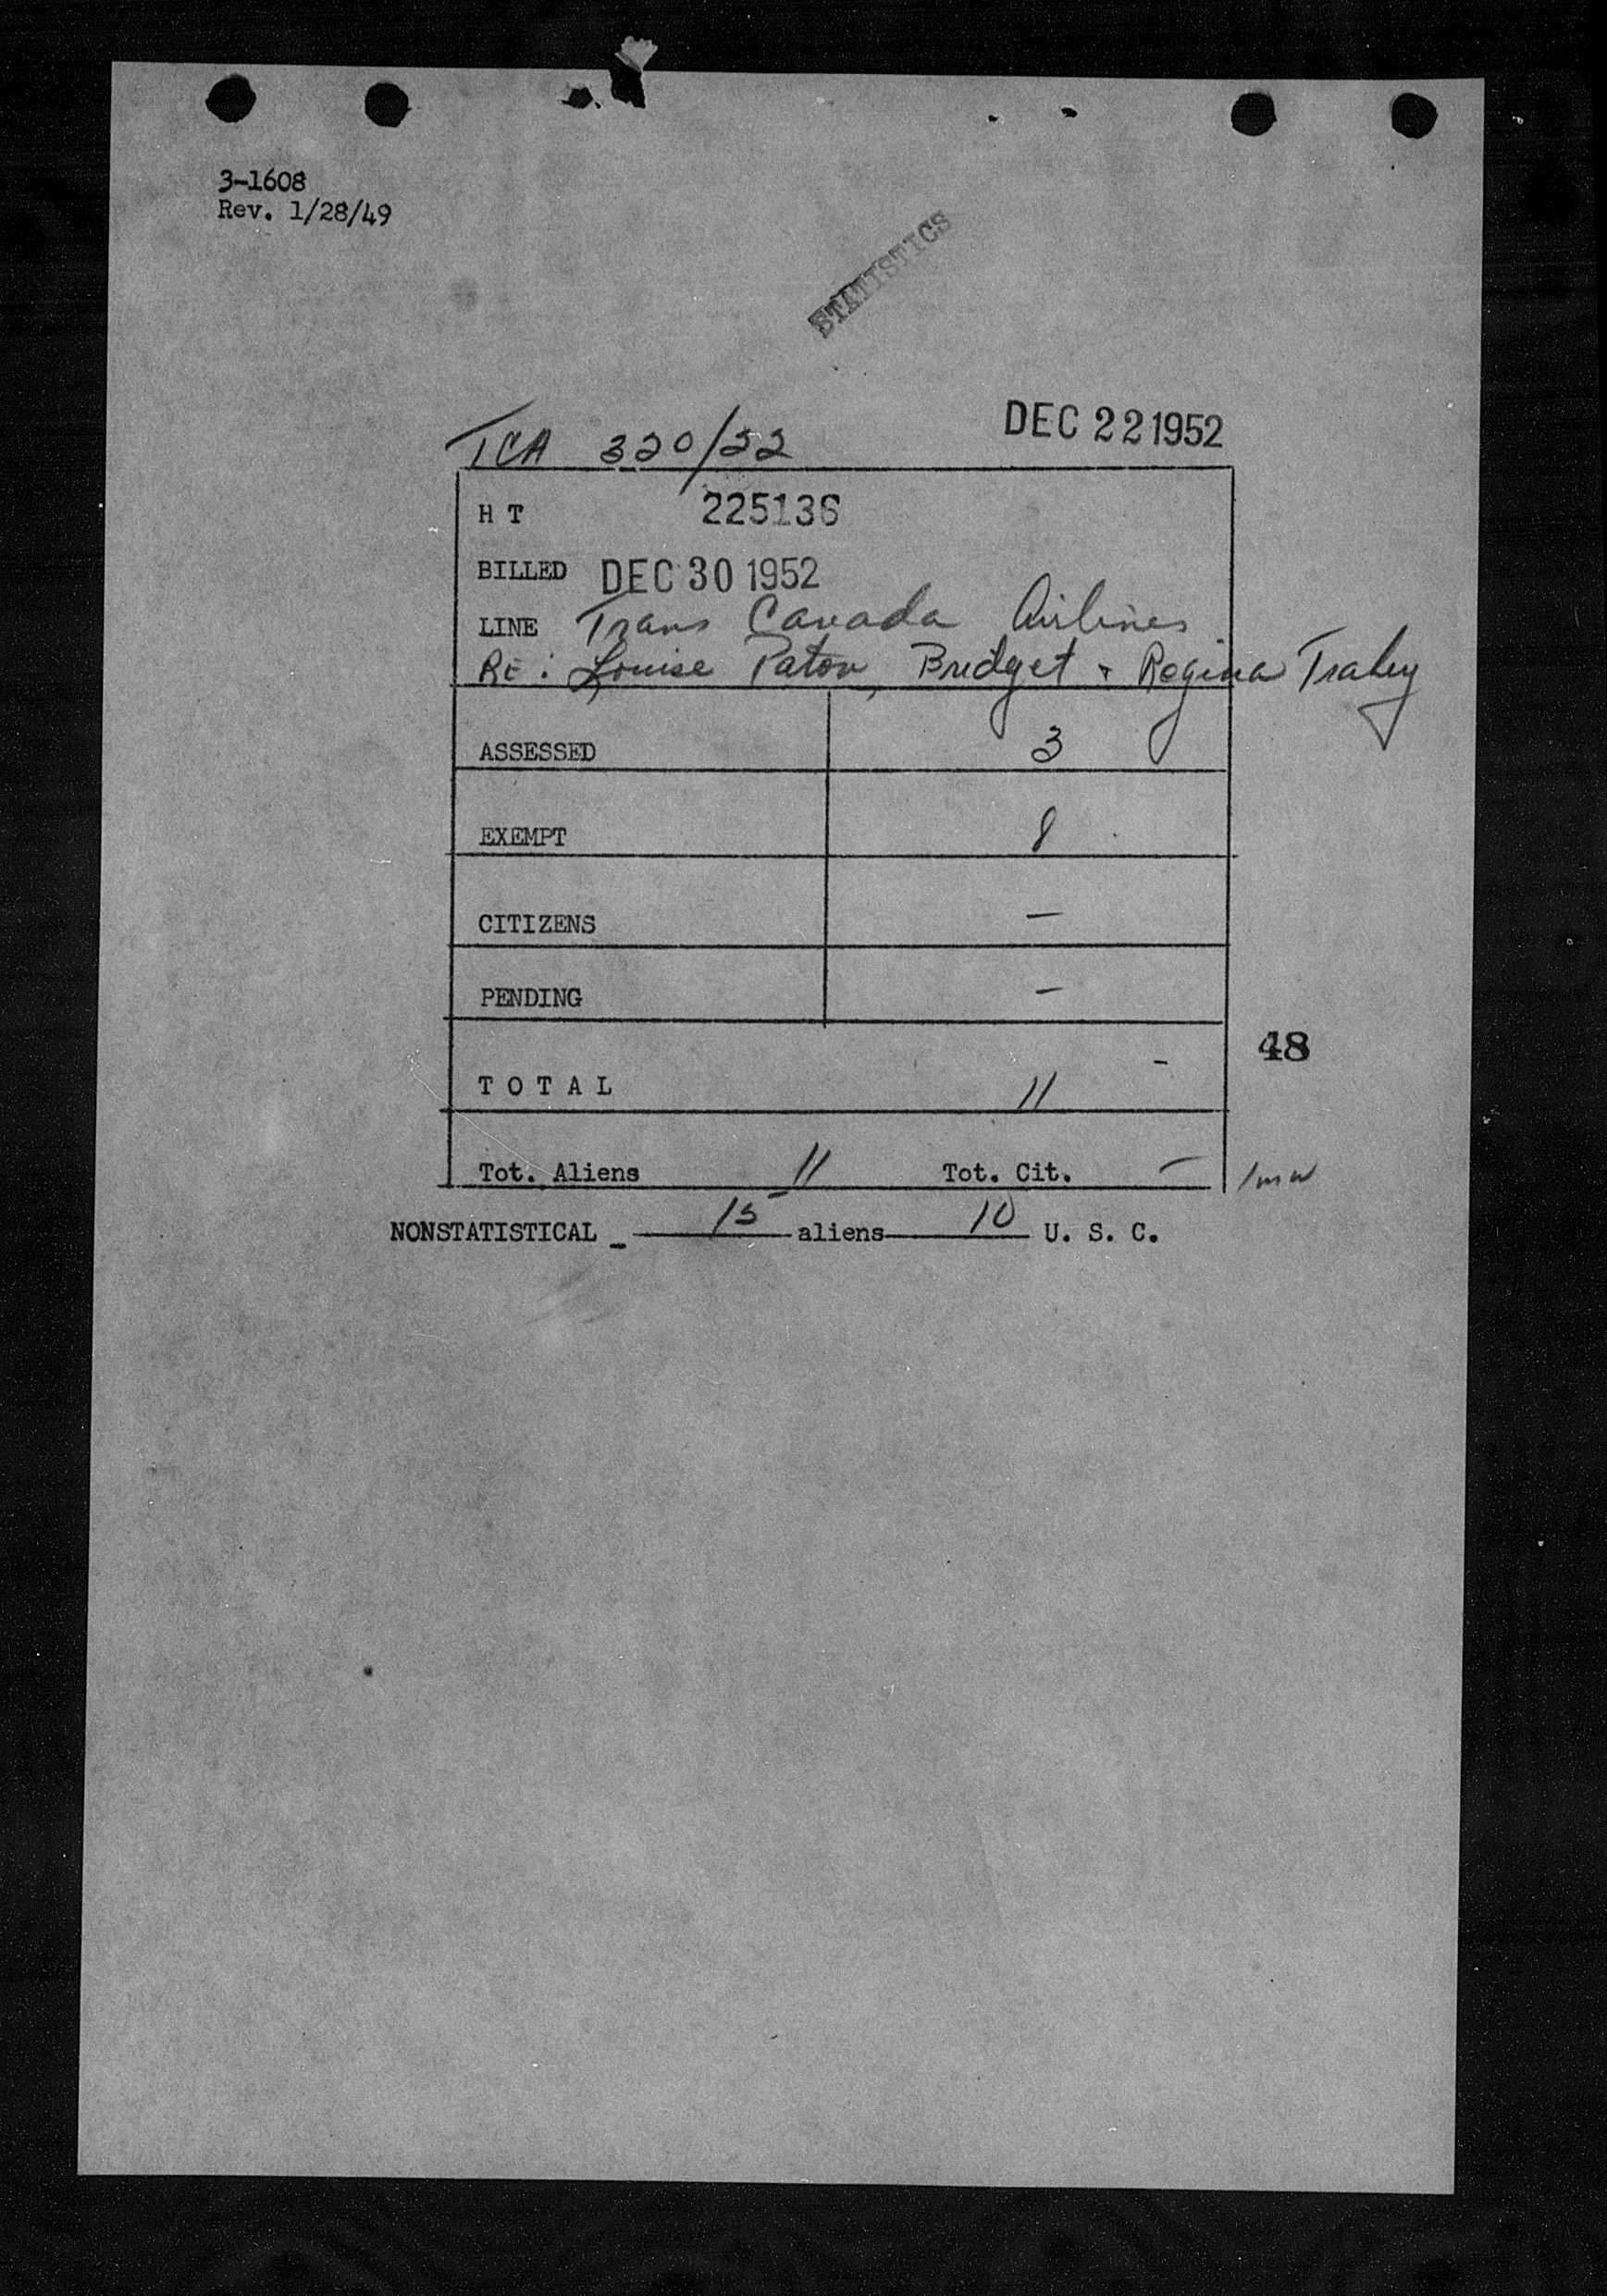 3-1608
Rev. 1/28/49
STATISTICS
TCA 320/22
DEC 22 1952
H T 225136
BILLED DEC 30 1952
LINE Trans Canada Airlines
RE: Louise Paton, Bridget & Regina Trahey
ASSESSED 3
EXEMPT 8
CITIZENS —
PENDING —
48
T O T A L 11 -
Tot. Aliens 11 Tot. Cit. —
NONSTATISTICAL - 15 aliens 10 U. S. C.